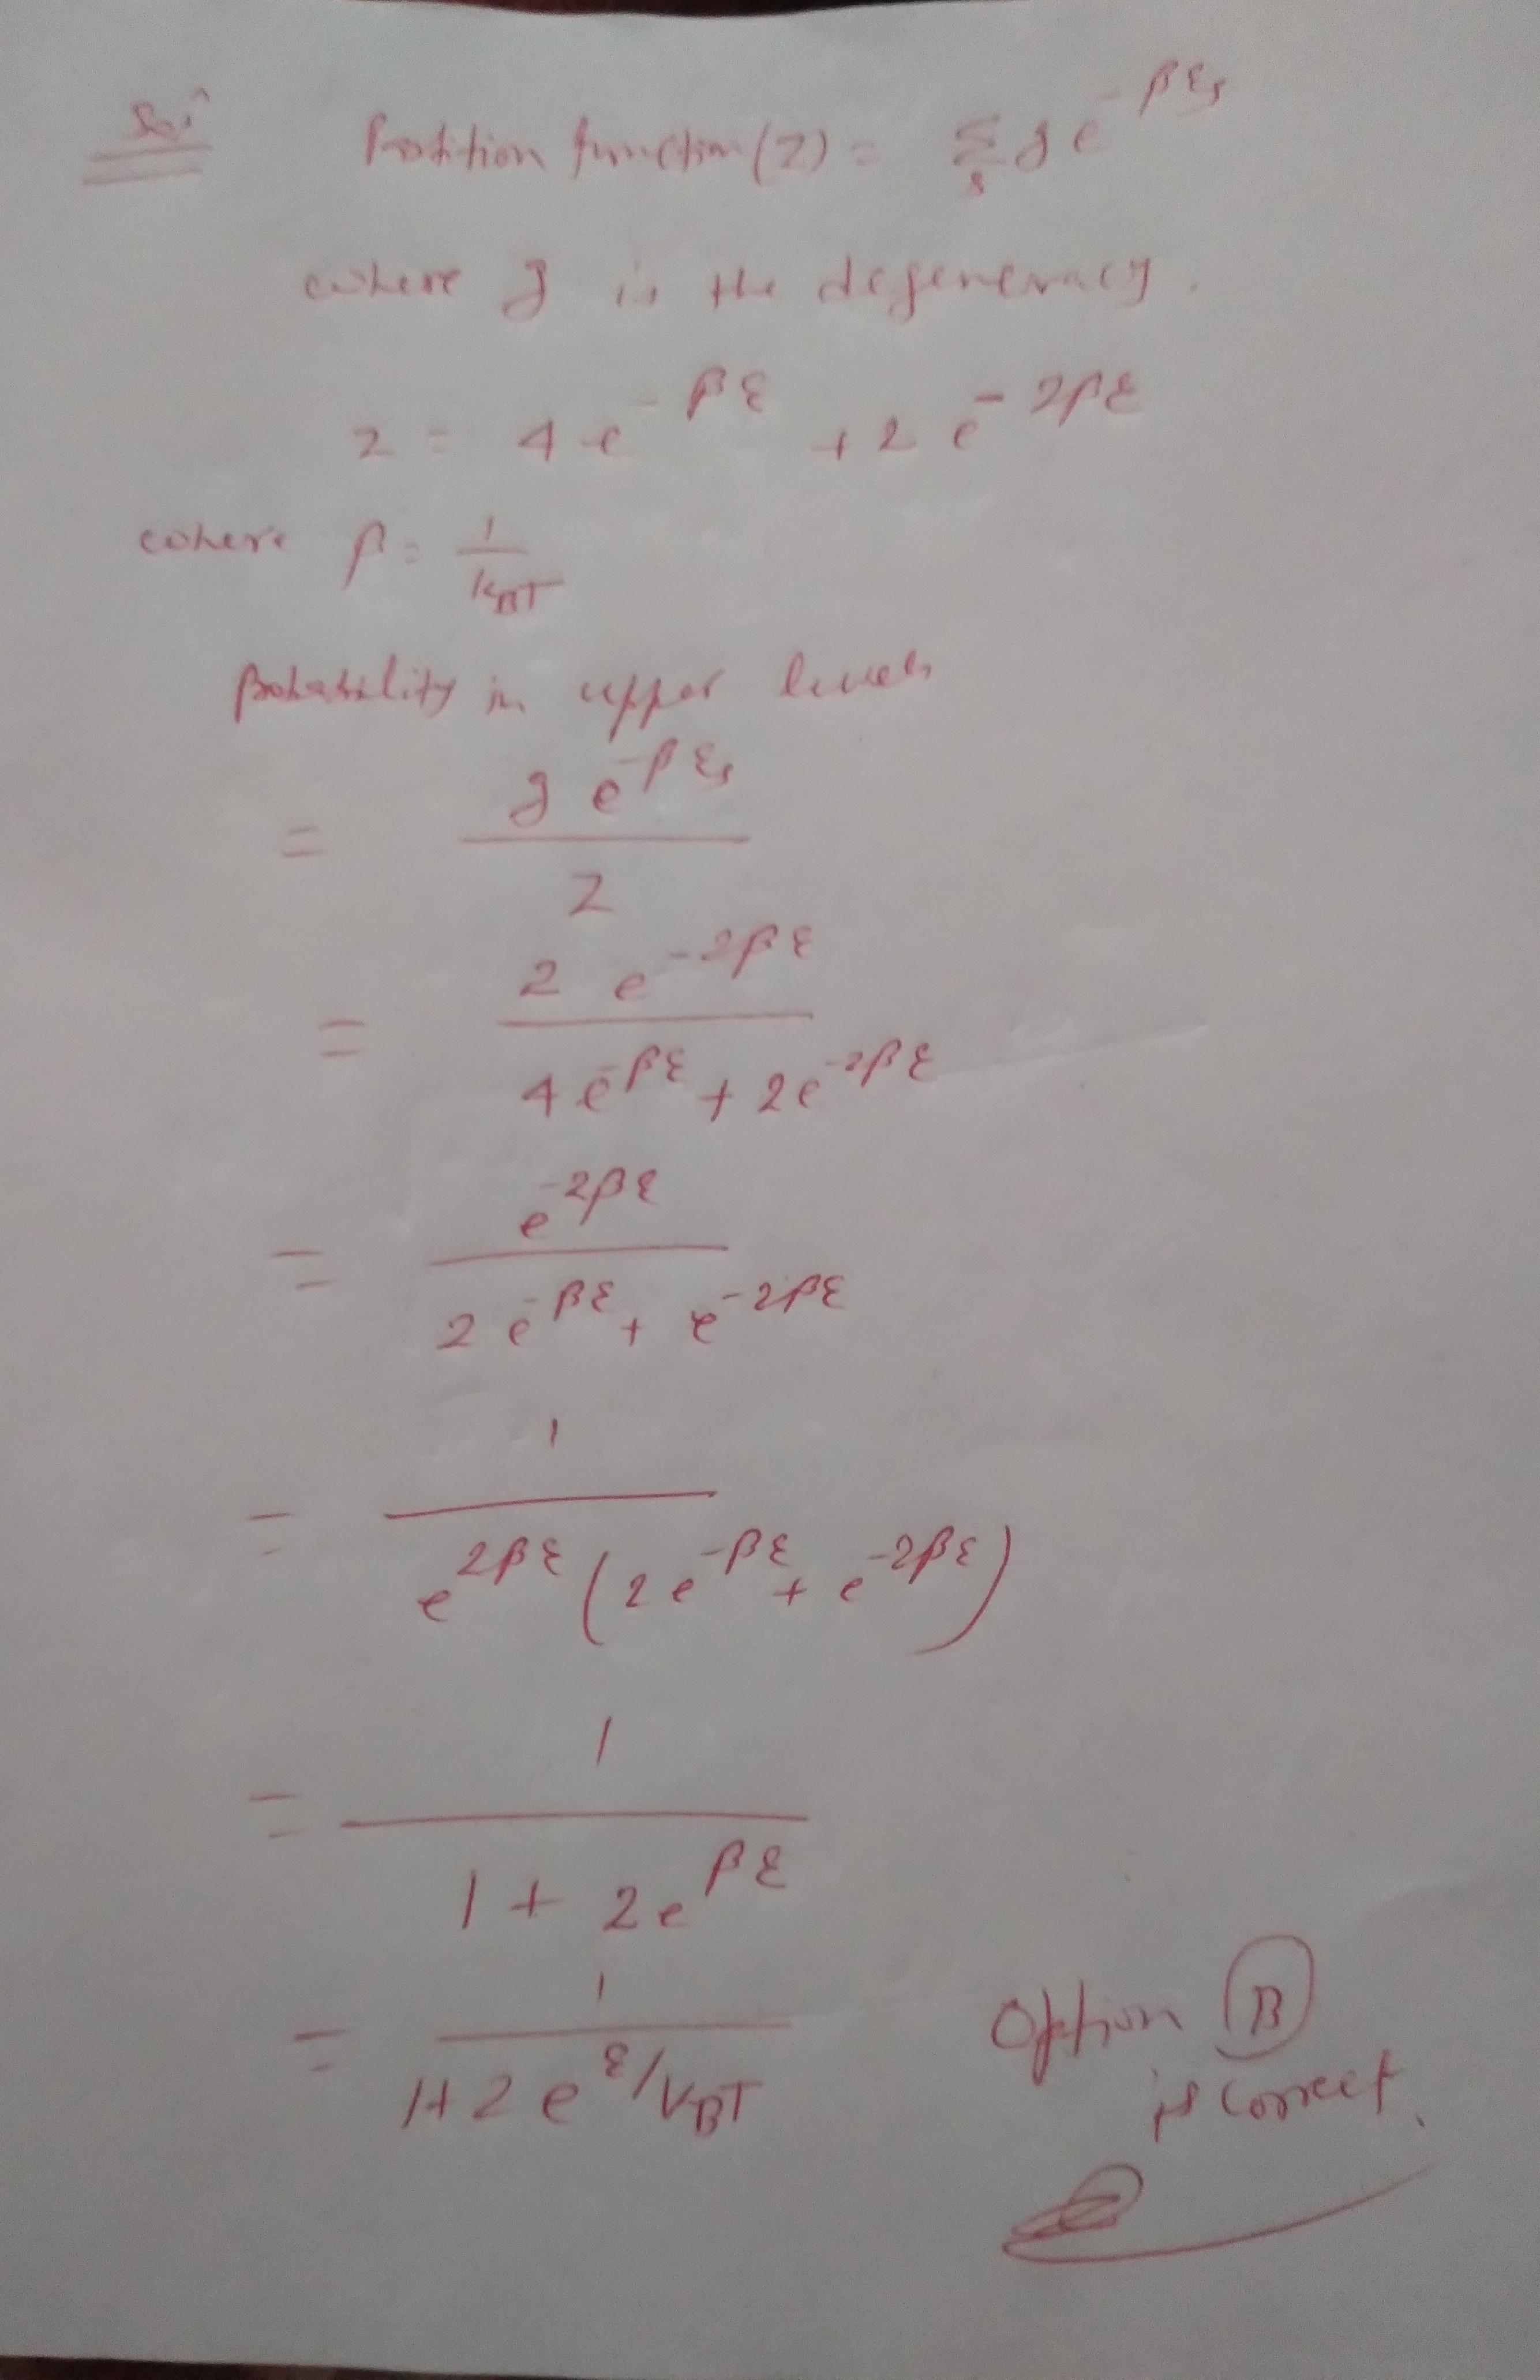 Solⁿ Partition function (Z) = Σ_s g e^{-βε_s}
where g is the degeneracy.
Z = 4 e^{-βε} + 2 e^{-2βε}
where β = 1/K_BT
probability in upper levels
= g e^{-βε_s} / Z
= 2 e^{-2βε} / 4 e^{-βε} + 2 e^{-2βε}
= e^{-2βε} / 2 e^{-βε} + e^{-2βε}
= 1 / e^{2βε} (2 e^{-βε} + e^{-2βε})
= 1 / 1 + 2 e^{βε}
= 1 / 1+2 e^{ε/K_BT}
Option B
is correct.